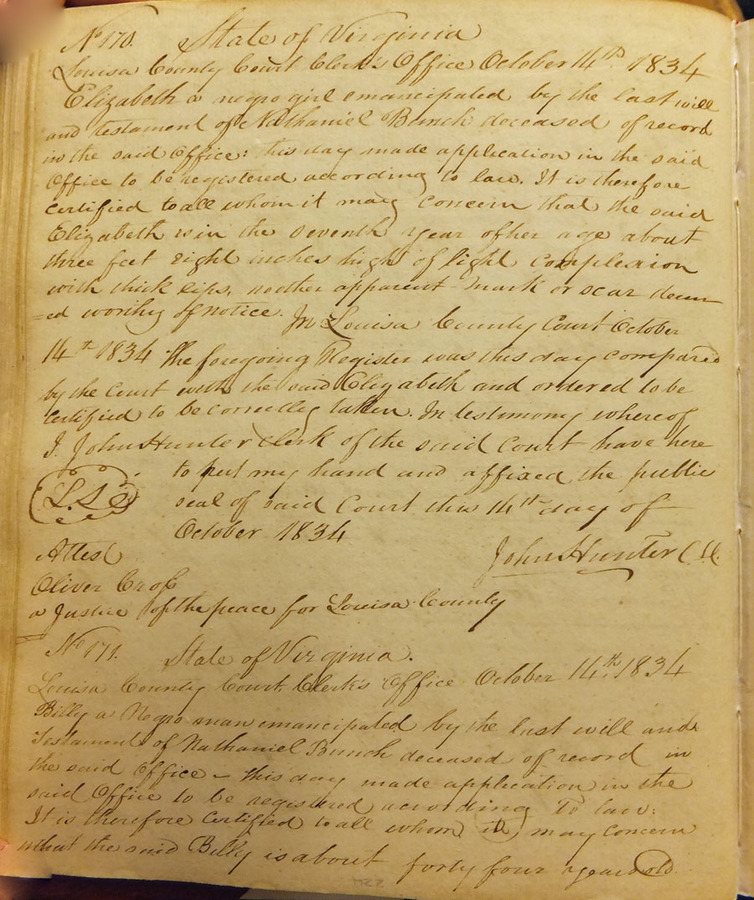 No 170. State of Virginia
Louisa County Court Clerk's Office October 14th 1834
Elizabeth a negro girl emancipated by the last will
and testament of Nathaniel Bunch deceased of record
in the said Office: this day made application in the said
Office to be registered according to law. It is therefore
certified to all whom it may concern that the said
Elizabeth is in the seventh year of her age about
three feet eight inches high of light complexion
with thick lips, no other apparent mark or scar deem
=ed worthy of notice. In Louisa County Court October
14th 1834 The foregoing Register was this day compared
by the Court with the said Elizabeth and ordered to be
certified to be correctly taken. In testimony whereof
I. John Hunter Clerk of the said Court have here
to put my hand and affixed the public
L.S.
seal of said Court this 14th day of
October 1834
John Hunter
Attest
Oliver Cross
a Justice of the peace for Louisa County
No 171. State of Virginia.
Louisa County Court Clerk's Office October 14th 1834
Billy a Negro man emancipated by the last will and
Testament of Nathaniel Bunch deceased of record in
the said Office - this day made application in the
said Office to be registered according To law:
It is therefore certified to all whom it may concern
that the said Billy is about forty four years old